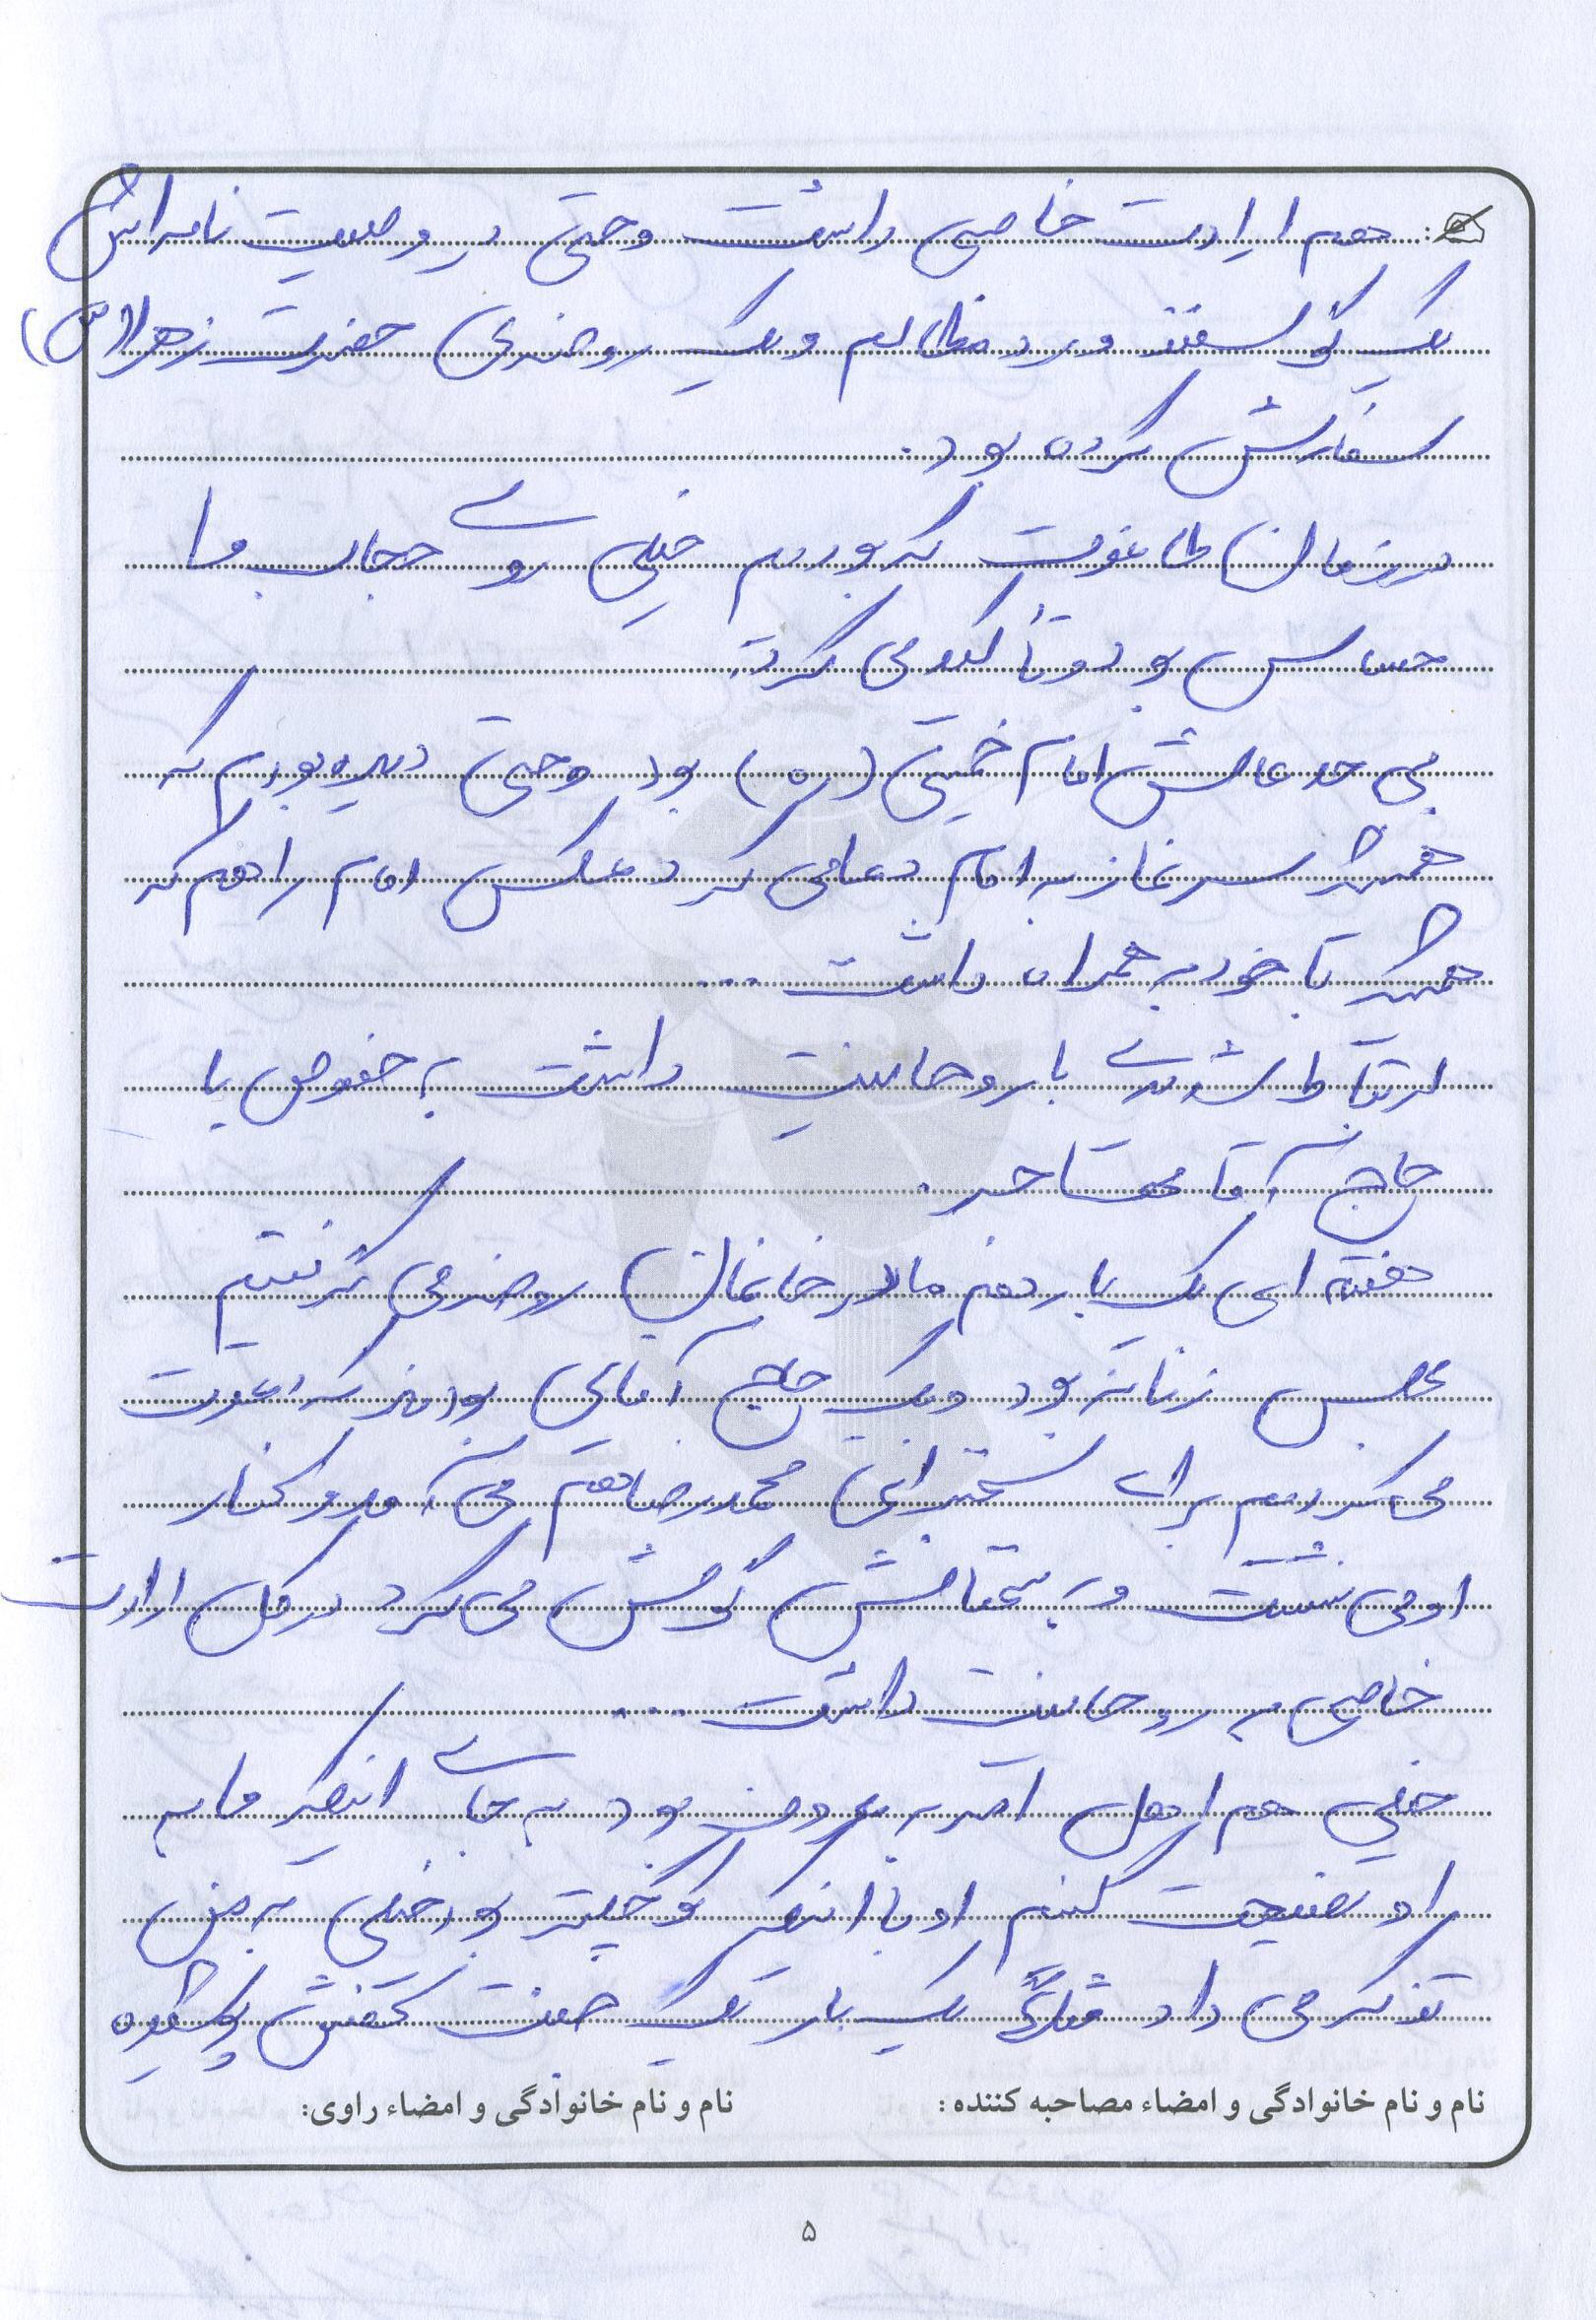 هم ارادت خاصی داشت وحتی در وصیت نامه اش
یک گوسفند ورد مظالم ویک روضه‌ی حضرت زهرا(س)
سفارش کرده بود.
در زمان طاغوت که بودیم خیلی روی حجاب ما
حساس بود وتأکید می کرد.
بی حد عاشق امام خمینی (ره) بود وحتی دیده بودم که
همیشه سر نماز به امام دعا می کرد عکس امام را هم که
همیشه با خود به همراه داشت ...
ارتباط شدیدی با روحانیت داشت به خصوص با
حاج آقا
هفته ای یک بار هم ما در خانمان روضه می گرفتیم
مجلس زنانه بود ویک حاج آقایی بودند که دعوت
می کردیم برای سخنرانی محمدرضا هم می آمد و کنار
او می نشست و به سخنانش گوش می کرد در کل ارادت
خاصی به روحانیت داشت ...
خیلی هم اهل امر به معروف بود به جای اینکه ما به
او نصیحت کنیم او با اینکه کوچیکتر بود خیلی به من
تذکر می داد مثلاً یک بار یک صفت کفش پوشیده
نام و نام خانوادگی و امضاء مصاحبه کننده: نام و نام خانوادگی و امضاء راوی:
۵